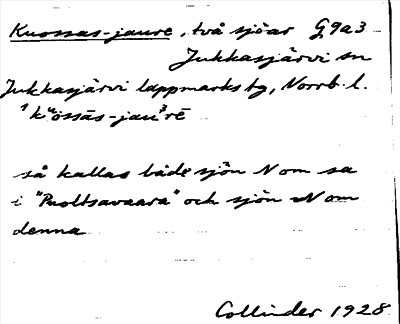 Kuossas-jaure, två sjöar G9a3
Jukkasjärvi sn
Jukkasjärvi lappmarks by, Norrb. l.
så kallas både sjön N om sa
i "Puoltsavaara" och sjön N om
denna
Collinder 1928